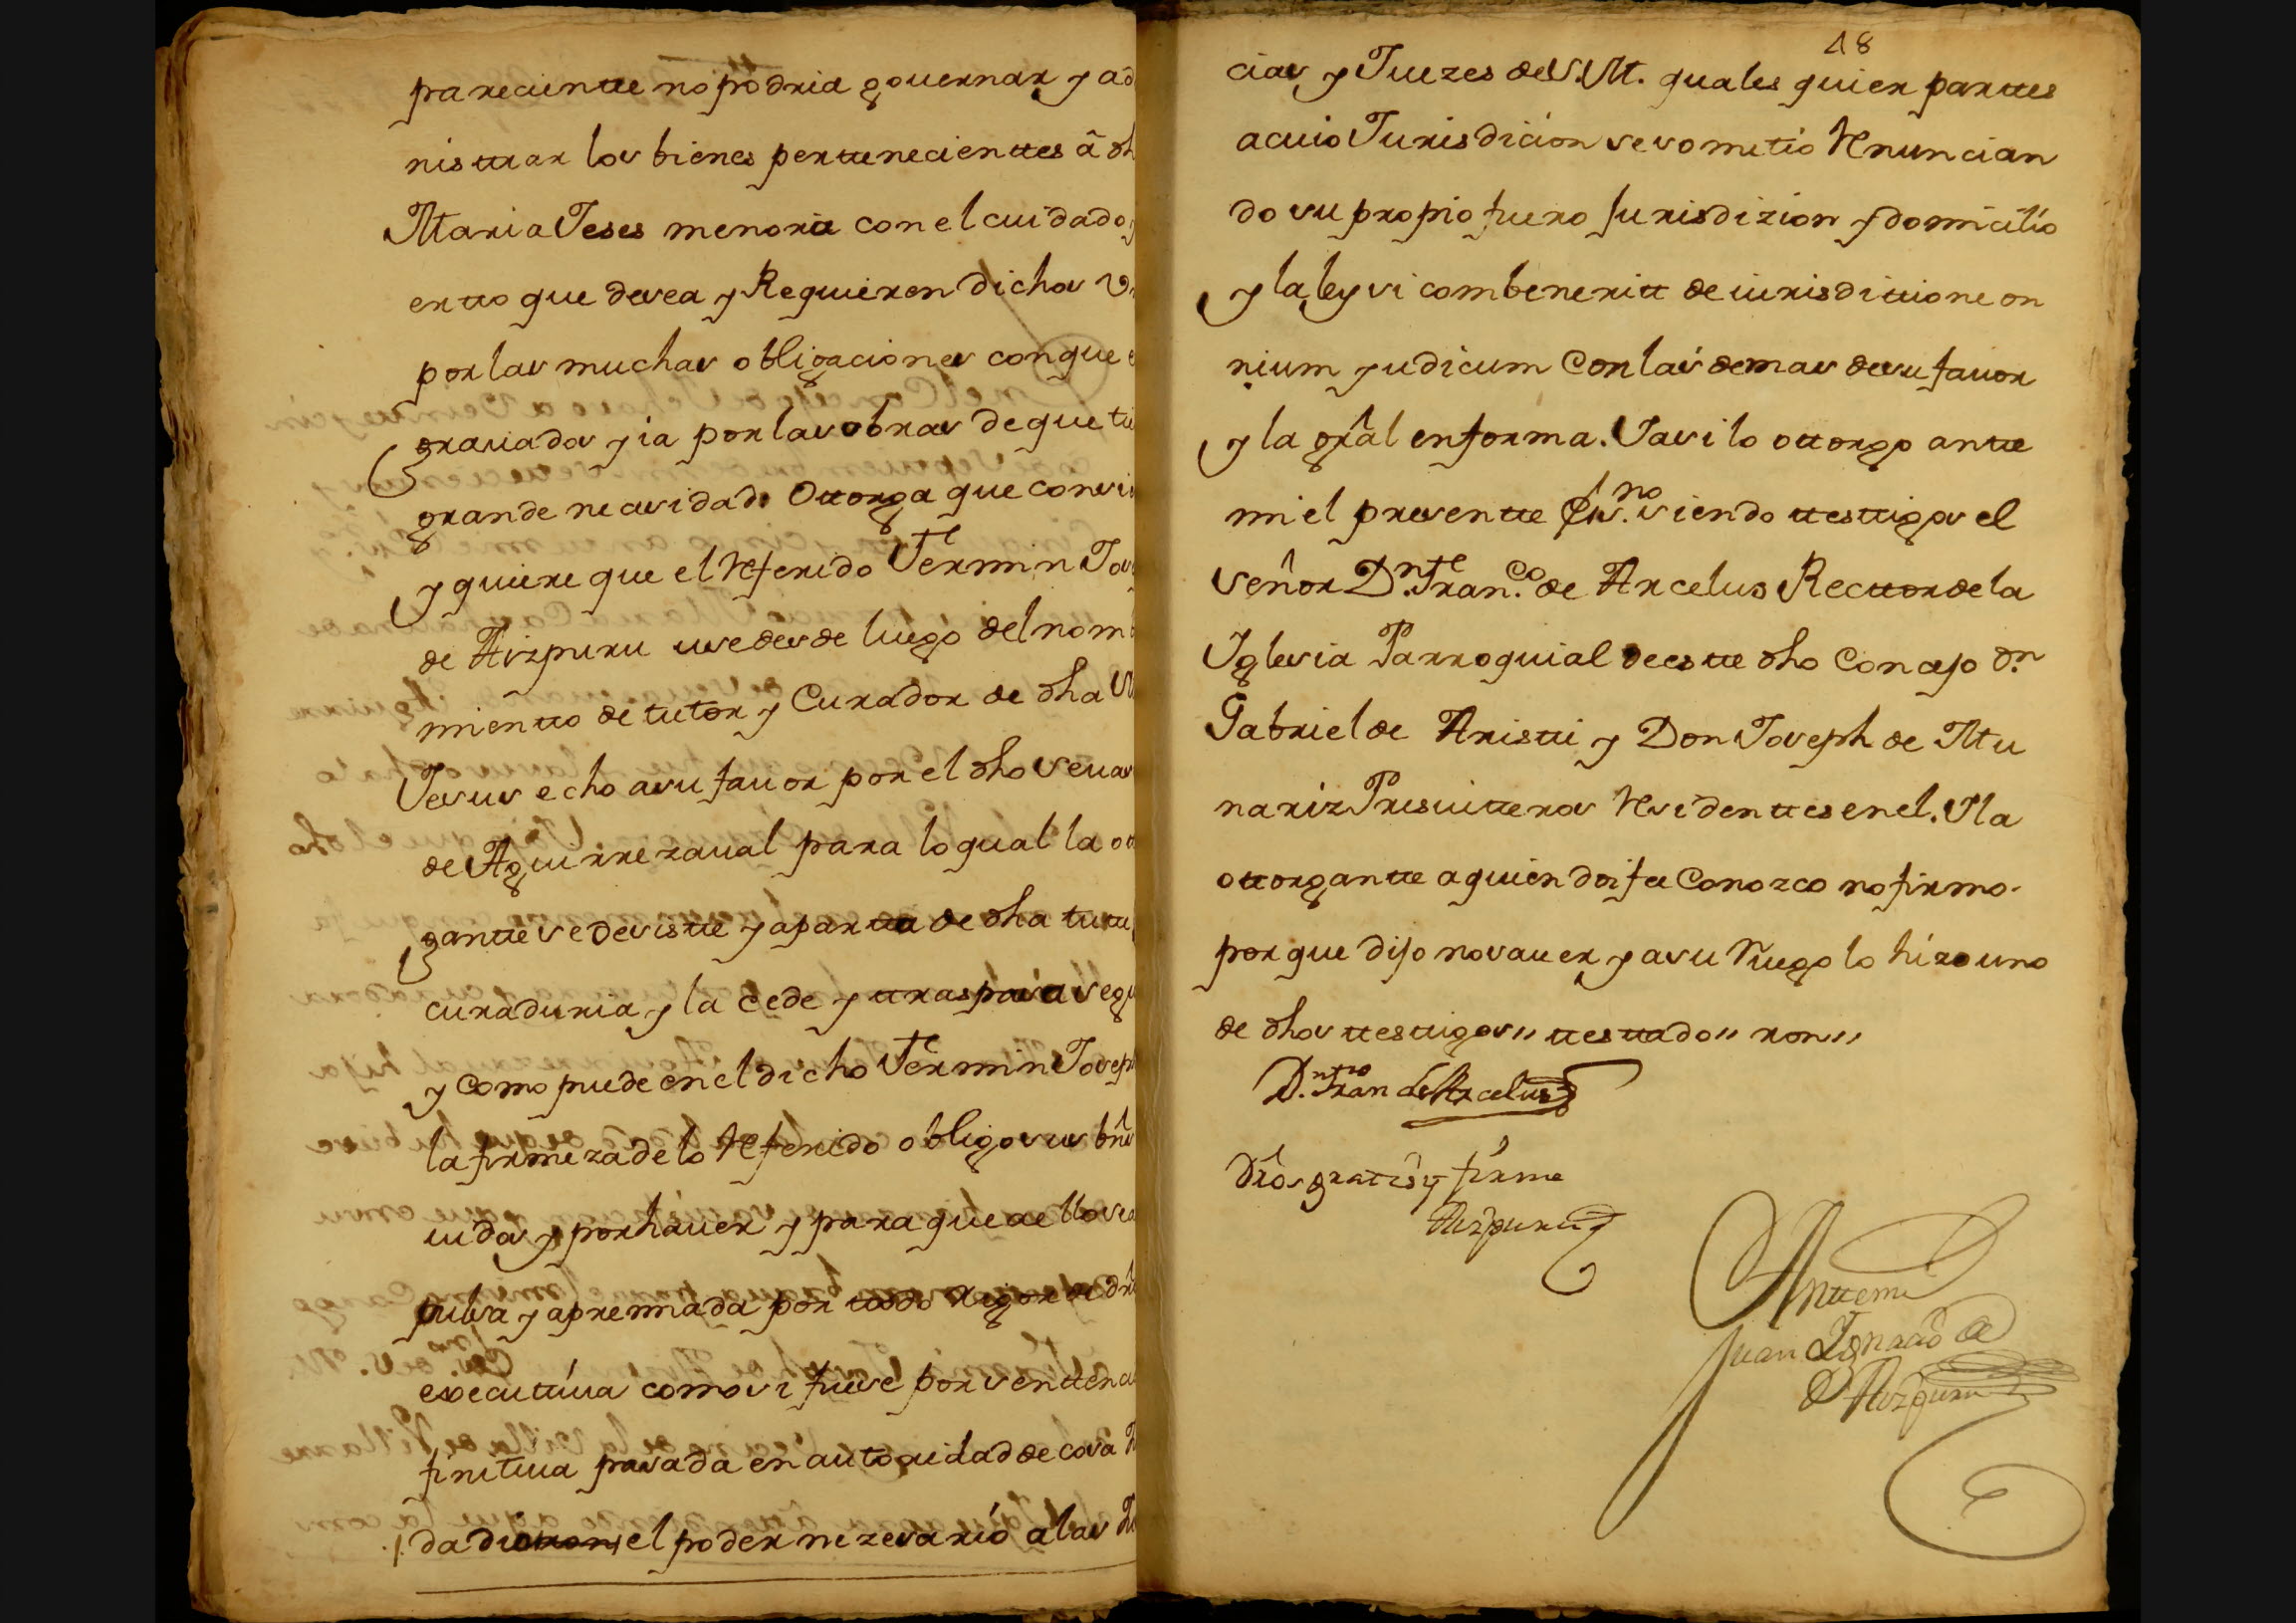 pareciente no podria governar y ad
nistrar los bienes pertenecientes â dh
Maria Jeses menoria con el cuidado y
ento que desea y Requieren dichos
por las muchas obligaciones con que e
gravados y ia por las obras de que tie
grande necesidad. Ottorga que consie
y quiere que el referido Fermin Jos
de Aizpuru use desde luego del nom
miento de tutor y Curador de dha
Jesus echo a su favor por el dho Sevas
de Aguirrezaval para lo qual la ot
gante se desiste y aparta de dha tute
curaduria y la cede y traspasa segu
y Como puede en el dicho Fermin Joseph
la firmeza de lo referido obligo sus bns
uidos y por haver y para que a ello sea
pulsa y apremiada por todo Rigor de dr
executiua como si fuese por sentencia
finitiua pasada en autoridad de cosa
da dieron el poder nezesario a las

18
cias y Juezes de S.M. quales quier partes
a cuio Jurisdicion se sometio renuncian
do su propio fuero Jurisdizion y domicilio
y la ley si combenerit de iurisdittione on
nium yudicum Con las demas de su favor
y la gral en forma. Y asi lo ottorgo ante
mi el presente Esno. siendo testigos el
señor Dn. Franco. de Arcelus Rector de la
Iglesia Parroquial de este dho Concejo dn
Gabriel de Aristi y Don Joseph de Mu
nariz Presuiteros residentes en el. Y la
ottorgante a quien doi fee Conozco no firmo
porque dijo no saver y a su ruego lo hizo uno
de dhos testigos // testado // ron //
Dn. Fran de Arcelus
Dros gratis y firme
Aizpuru
Ante mi
Juan Ignacio de
Aizpuru